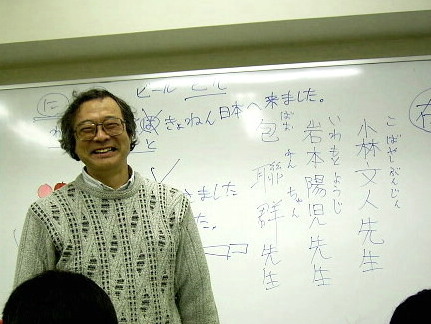 に
ビール ビル
きょねん日本へ来ました。
と
きました
た。
こばやしぶんじん
小林文人先生
いわもとようじ
岩本陽児先生
ばお れん ちゅん
包聯群先生